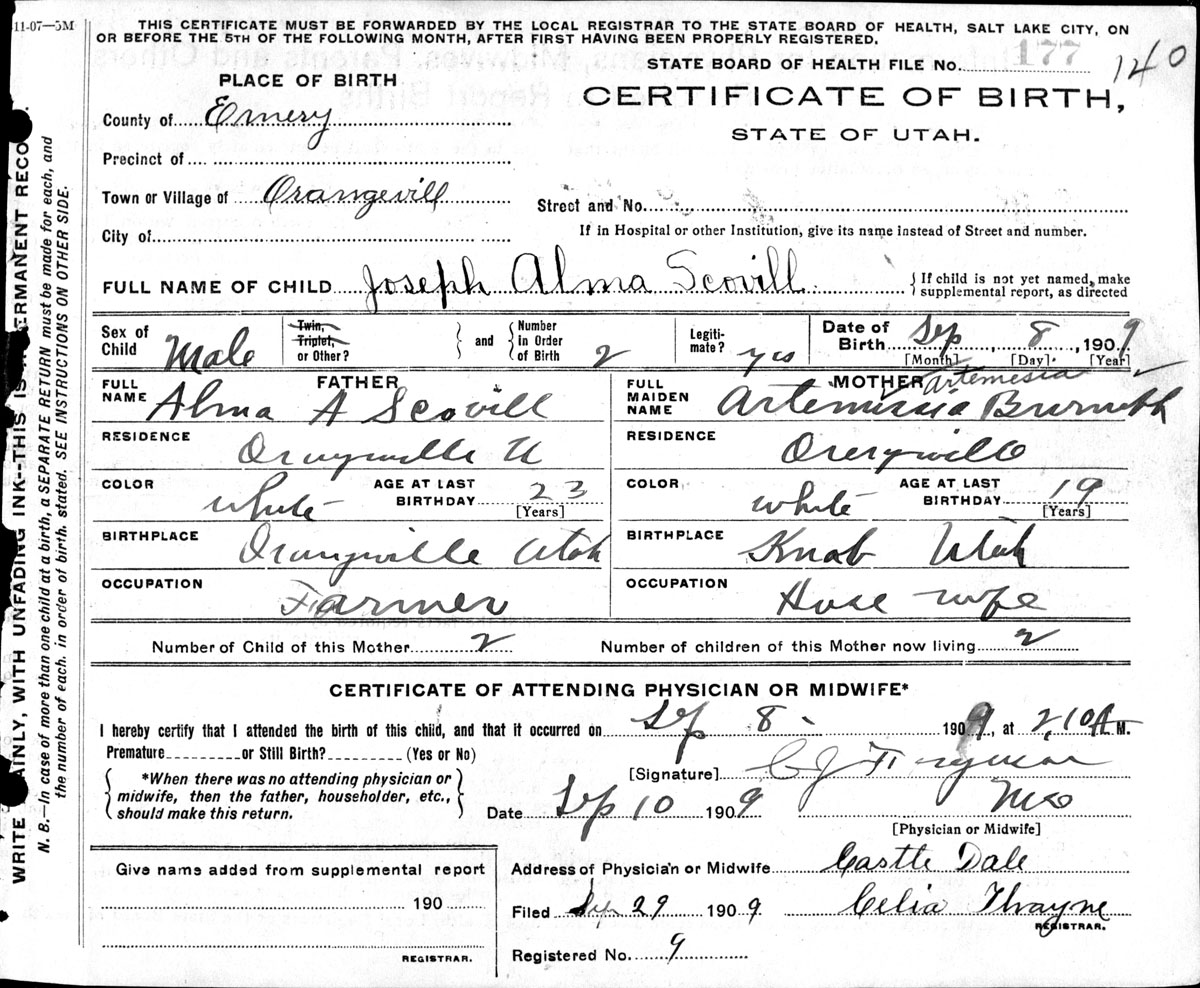 11-07—5M
THIS CERTIFICATE MUST BE FORWARDED BY THE LOCAL REGISTRAR TO THE STATE BOARD OF HEALTH, SALT LAKE CITY, ON
OR BEFORE THE 5TH OF THE FOLLOWING MONTH, AFTER FIRST HAVING BEEN PROPERLY REGISTERED.
STATE BOARD OF HEALTH FILE No. 177 140
PLACE OF BIRTH
CERTIFICATE OF BIRTH,
STATE OF UTAH.
County of Emery
Precinct of
Town or Village of Orangevill
Street and No.
City of
If in Hospital or other Institution, give its name instead of Street and number.
FULL NAME OF CHILD Joseph Alma Scovill
{ If child is not yet named, make
supplemental report, as directed
Sex of Child Male
Twin, Triplet, or Other?
and
Number in Order of Birth 2
Legitimate? yes
Date of Birth Sep 8, 1909
[Month] [Day] [Year]
FATHER
FULL NAME Alma A Scovill
RESIDENCE Orangville U
COLOR White
AGE AT LAST BIRTHDAY 23
[Years]
BIRTHPLACE Orangville Utah
OCCUPATION Farmer
MOTHER Artemesia
FULL MAIDEN NAME Artemissia
RESIDENCE
COLOR White
AGE AT LAST BIRTHDAY 19
[Years]
BIRTHPLACE Knab Utah
OCCUPATION Huse wife
Number of Child of this Mother 2
Number of children of this Mother now living 2
CERTIFICATE OF ATTENDING PHYSICIAN OR MIDWIFE*
I hereby certify that I attended the birth of this child, and that it occurred on Sep 8 1909, at 2,10 A M.
Premature or Still Birth? (Yes or No)
*When there was no attending physician or
midwife, then the father, householder, etc.,
should make this return.
[Signature]
Date Sep 10 1909
[Physician or Midwife]
Give name added from supplemental report
190
REGISTRAR.
Address of Physician or Midwife Castle Dale
Filed Sep 29 1909 Celia Thrayne
REGISTRAR.
Registered No. 9
WRITE PLAINLY, WITH UNFADING INK--THIS IS A PERMANENT RECORD.
N. B.—In case of more than one child at a birth, a SEPARATE RETURN must be made for each, and
the number of each, in order of birth, stated. SEE INSTRUCTIONS ON OTHER SIDE.